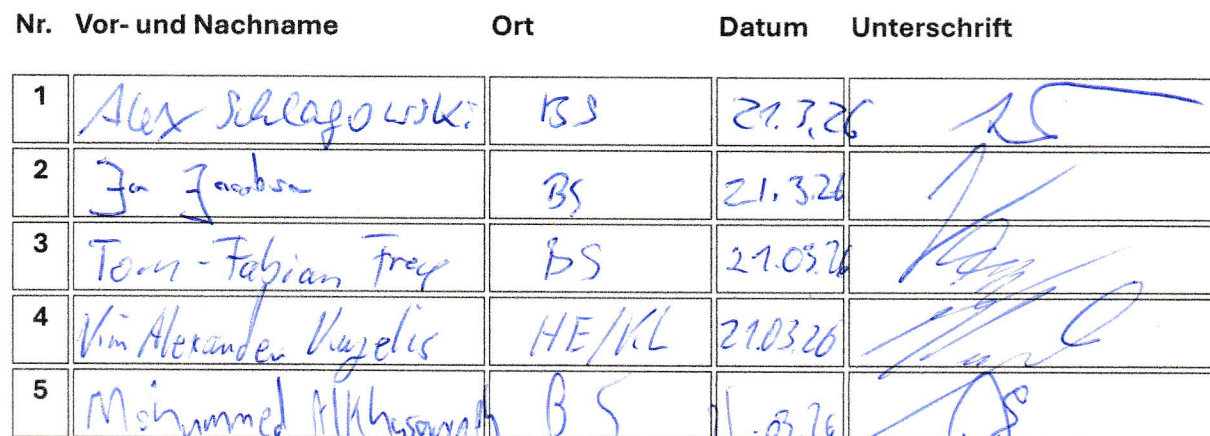 Nr. Vor- und Nachname Ort Datum Unterschrift
1 Alex Schlagowski BS 21.3.26
2 Jan Jacobsen BS 21.3.26
3 Tom-Fabian Frey BS 21.03.26
4 Alexander HE/KL 21.03.26
5 Mohammed BS .03.26